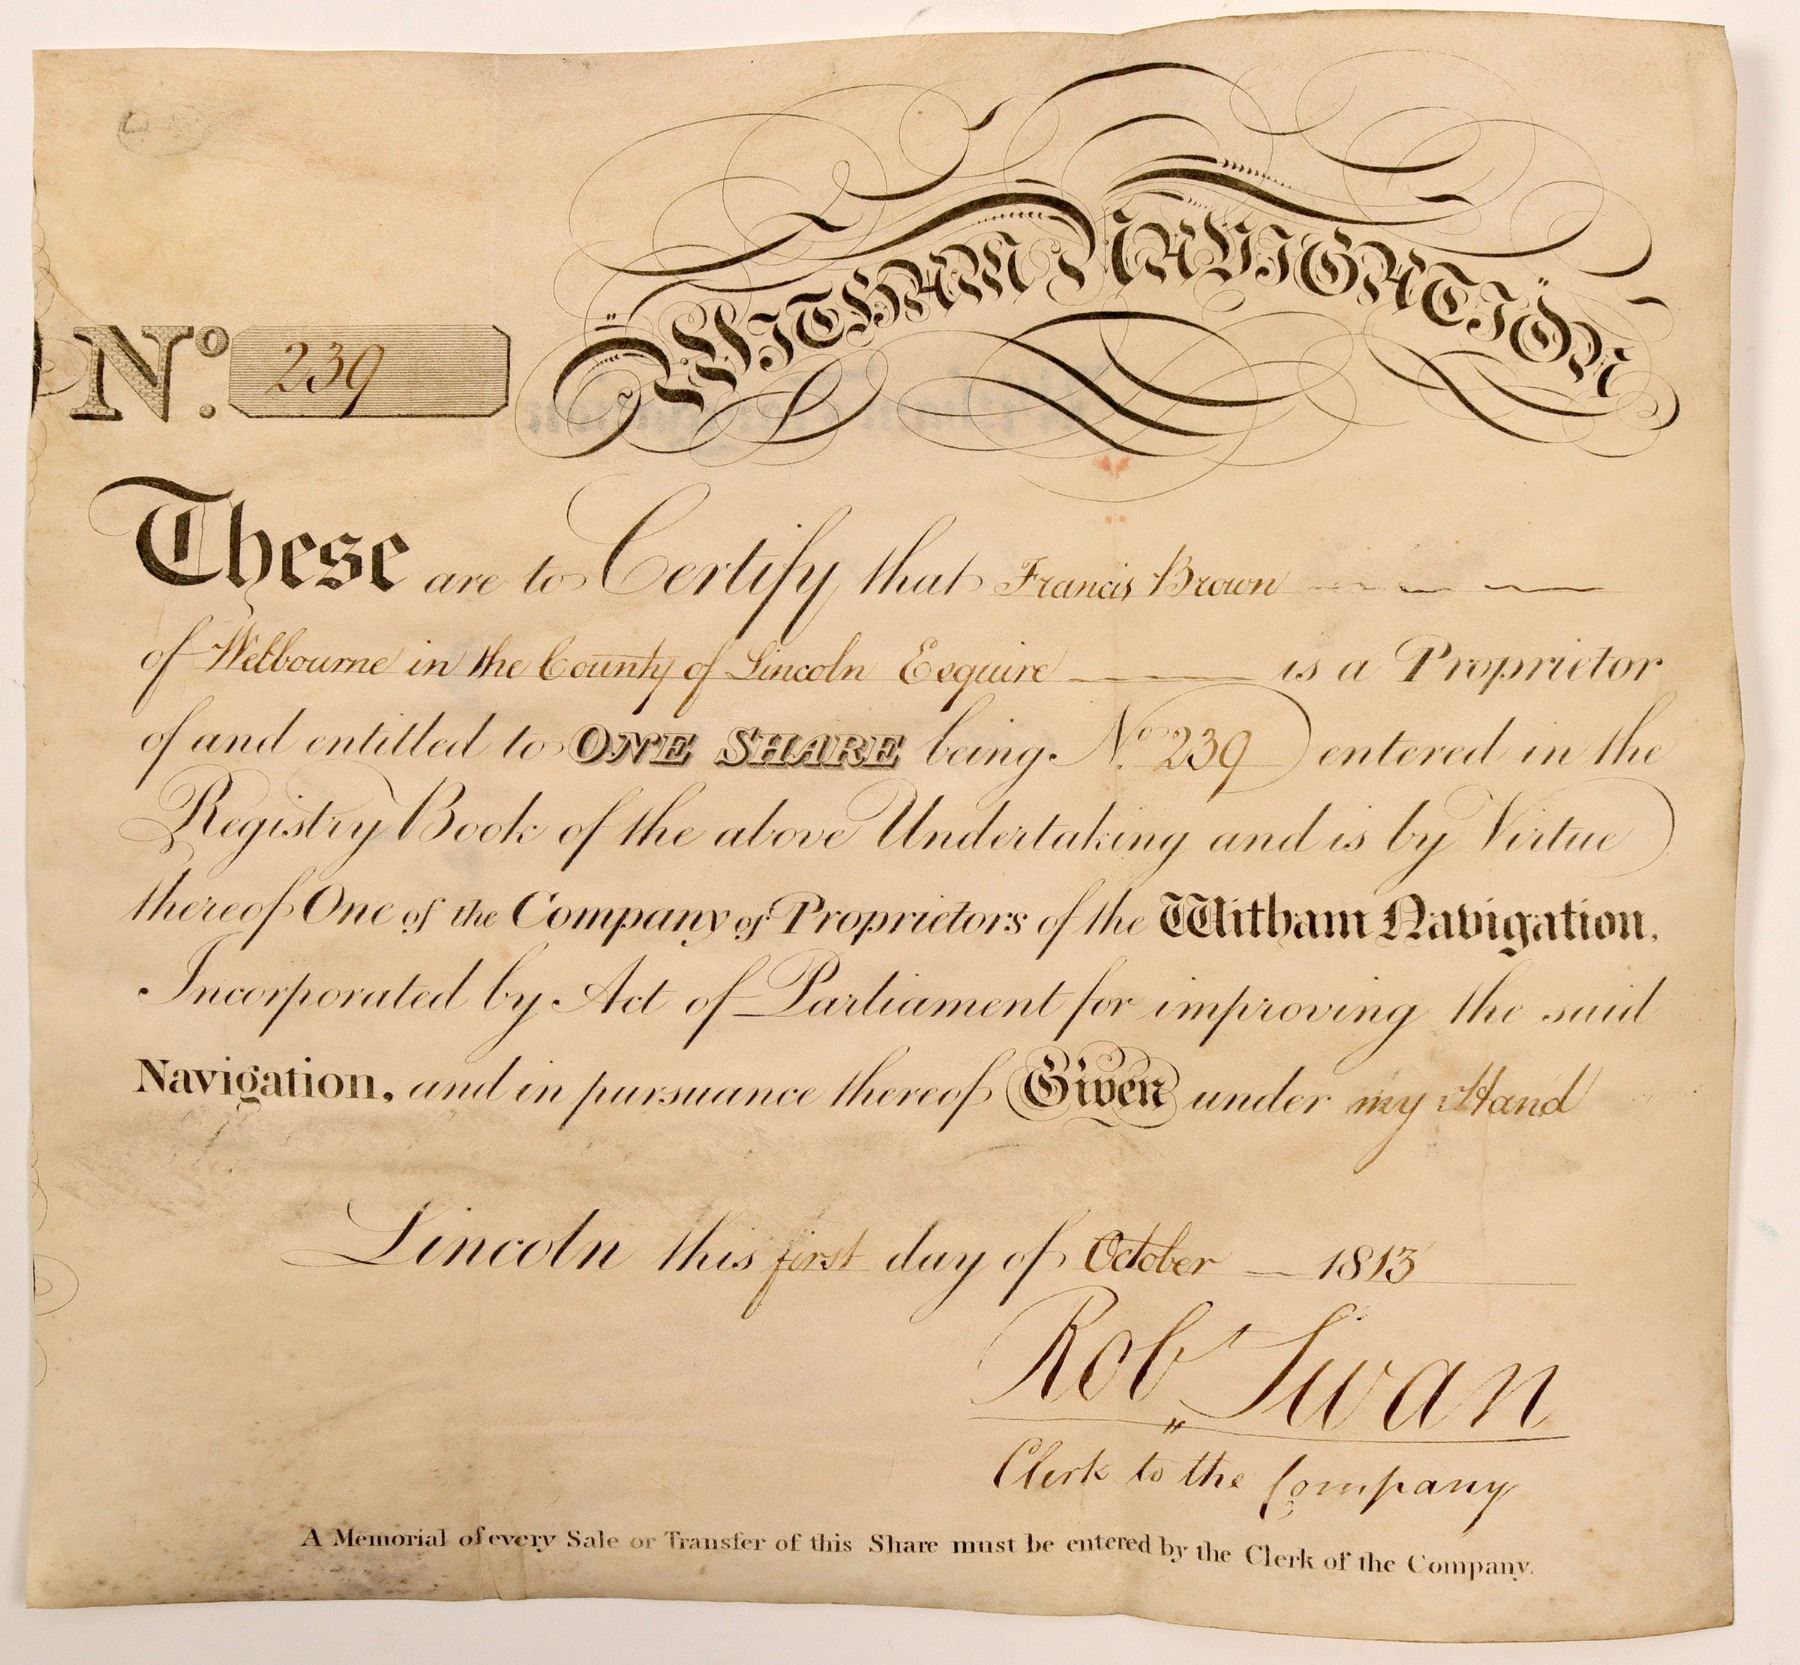 WITHAM NAVIGATION
No. 239
These are to Certify that Francis Brown
of Welbourne in the County of Lincoln Esquire is a Proprietor
of and entitled to ONE SHARE being No. 239 entered in the
Registry Book of the above Undertaking and is by Virtue
thereof One of the Company of Proprietors of the Witham Navigation,
Incorporated by Act of Parliament for improving the said
Navigation, and in pursuance thereof Given under my Hand
Lincoln this first day of October 1813
Rob Swan
Clerk to the Company
A Memorial of every Sale or Transfer of this Share must be entered by the Clerk of the Company.